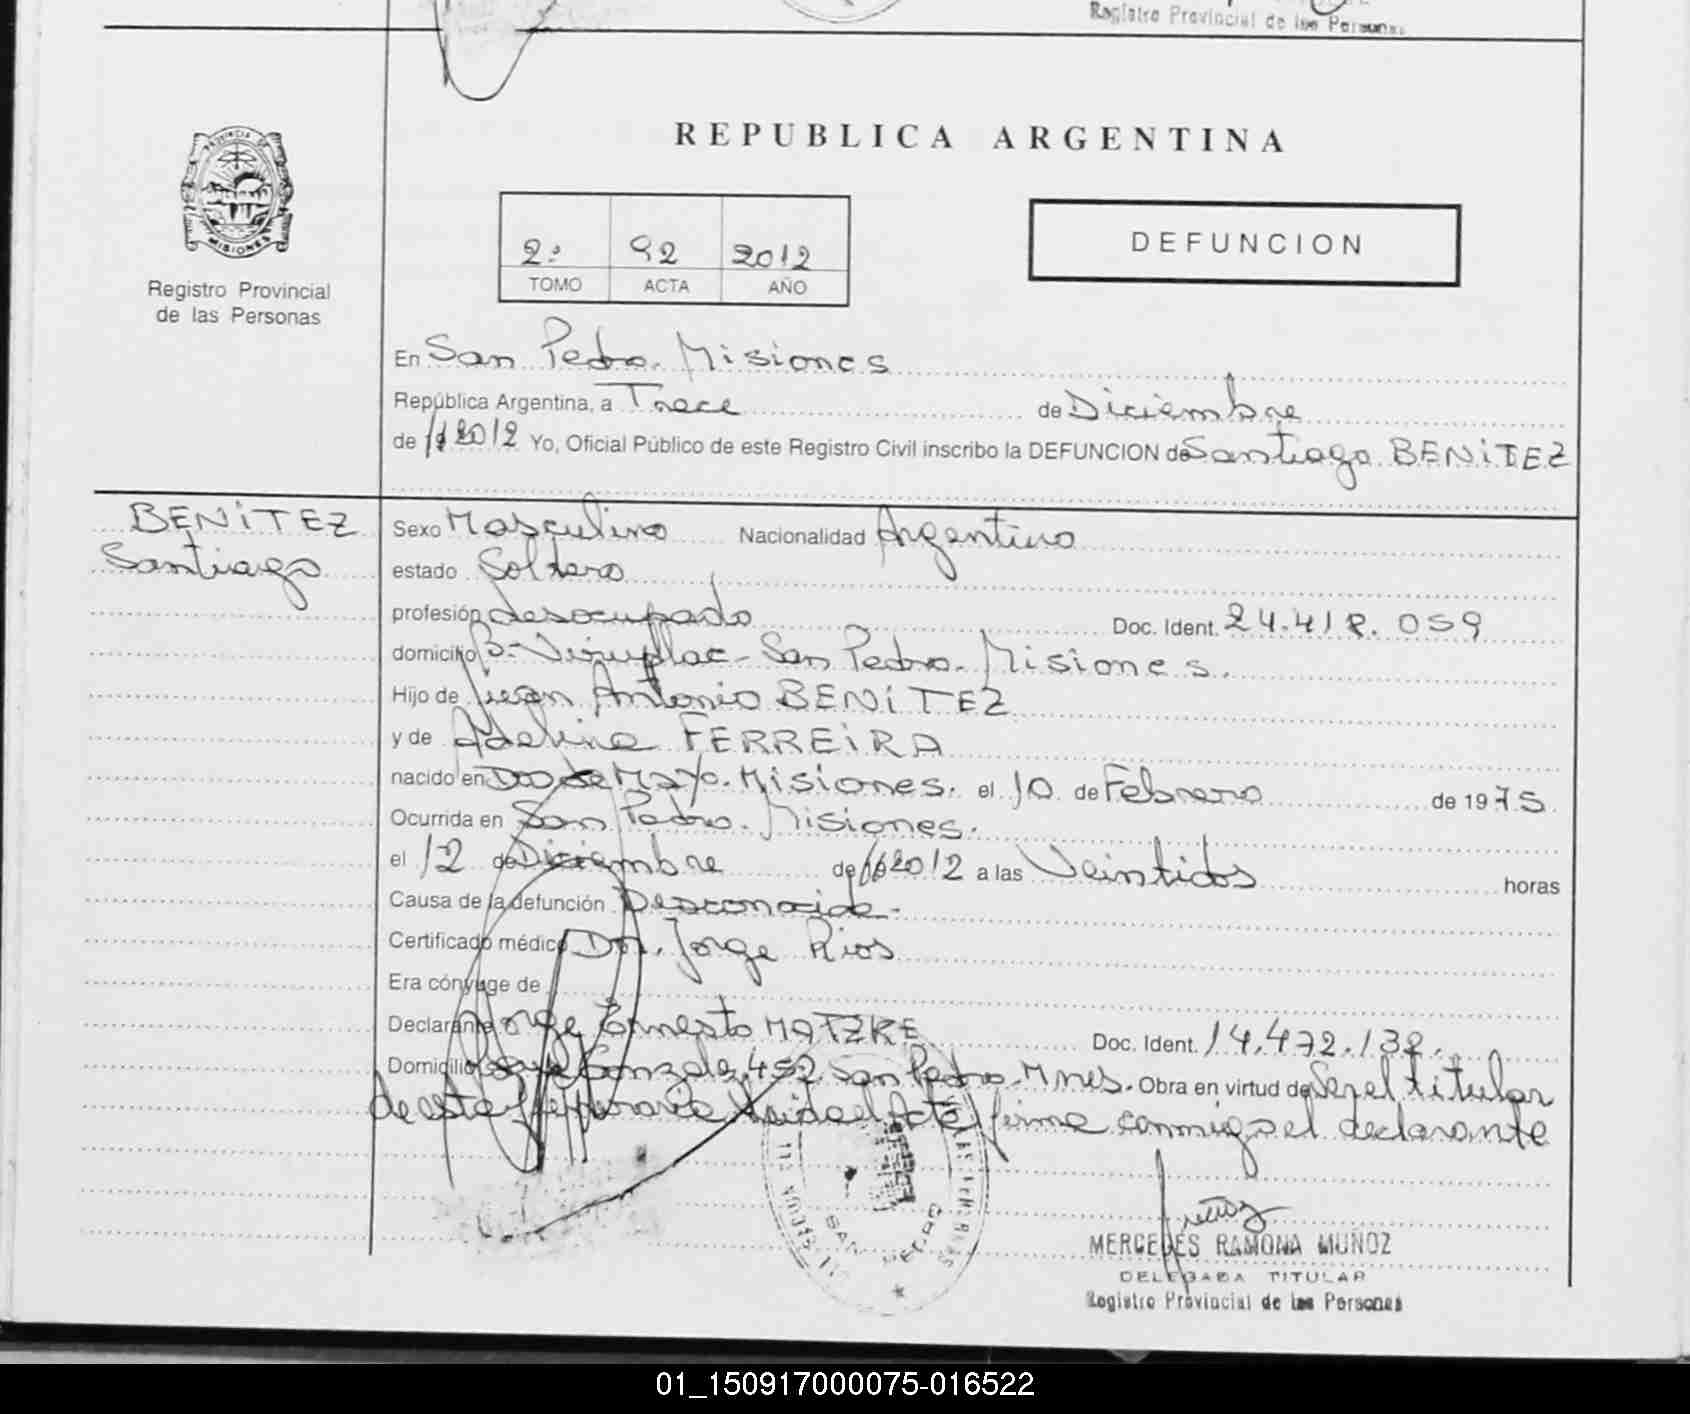 Registro Provincial de las Personas
REPUBLICA ARGENTINA
PROVINCIA DE
MISIONES
Registro Provincial
de las Personas
2º 92 2012
TOMO ACTA AÑO
DEFUNCION
En San Pedro. Misiones
República Argentina, a Trece de Diciembre
de 2012 Yo, Oficial Público de este Registro Civil inscribo la DEFUNCION de Santiago BENiTEZ
BENiTEZ
Santiago
Sexo Masculino Nacionalidad Argentino
estado Soltero
profesión desocupado Doc. Ident. 24.418.059
domicilio San Pedro. Misiones.
Hijo de Juan Antonio BENiTEZ
y de Adelina FERREiRA
nacido en Dos de Mayo. Misiones. el 10 de Febrero de 1975
Ocurrida en San Pedro. Misiones.
el 12 de Diciembre de 2012 a las Veintidos horas
Causa de la defunción Desconocida-
Certificado médico Dr. Jorge Rios
Era cónyuge de
Declarante Jorge Ernesto MATZKE Doc. Ident. 14.472.138.
Domicilio Gonzalez 452 San Pedro. Mnes. Obra en virtud de Ser el titular
de esta Leida el Acta firma conmigo el declarante
SAN PEDRO
MERCEDES RAMONA MUÑOZ
DELEGADA TITULAR
Registro Provincial de las Personas
01_150917000075-016522